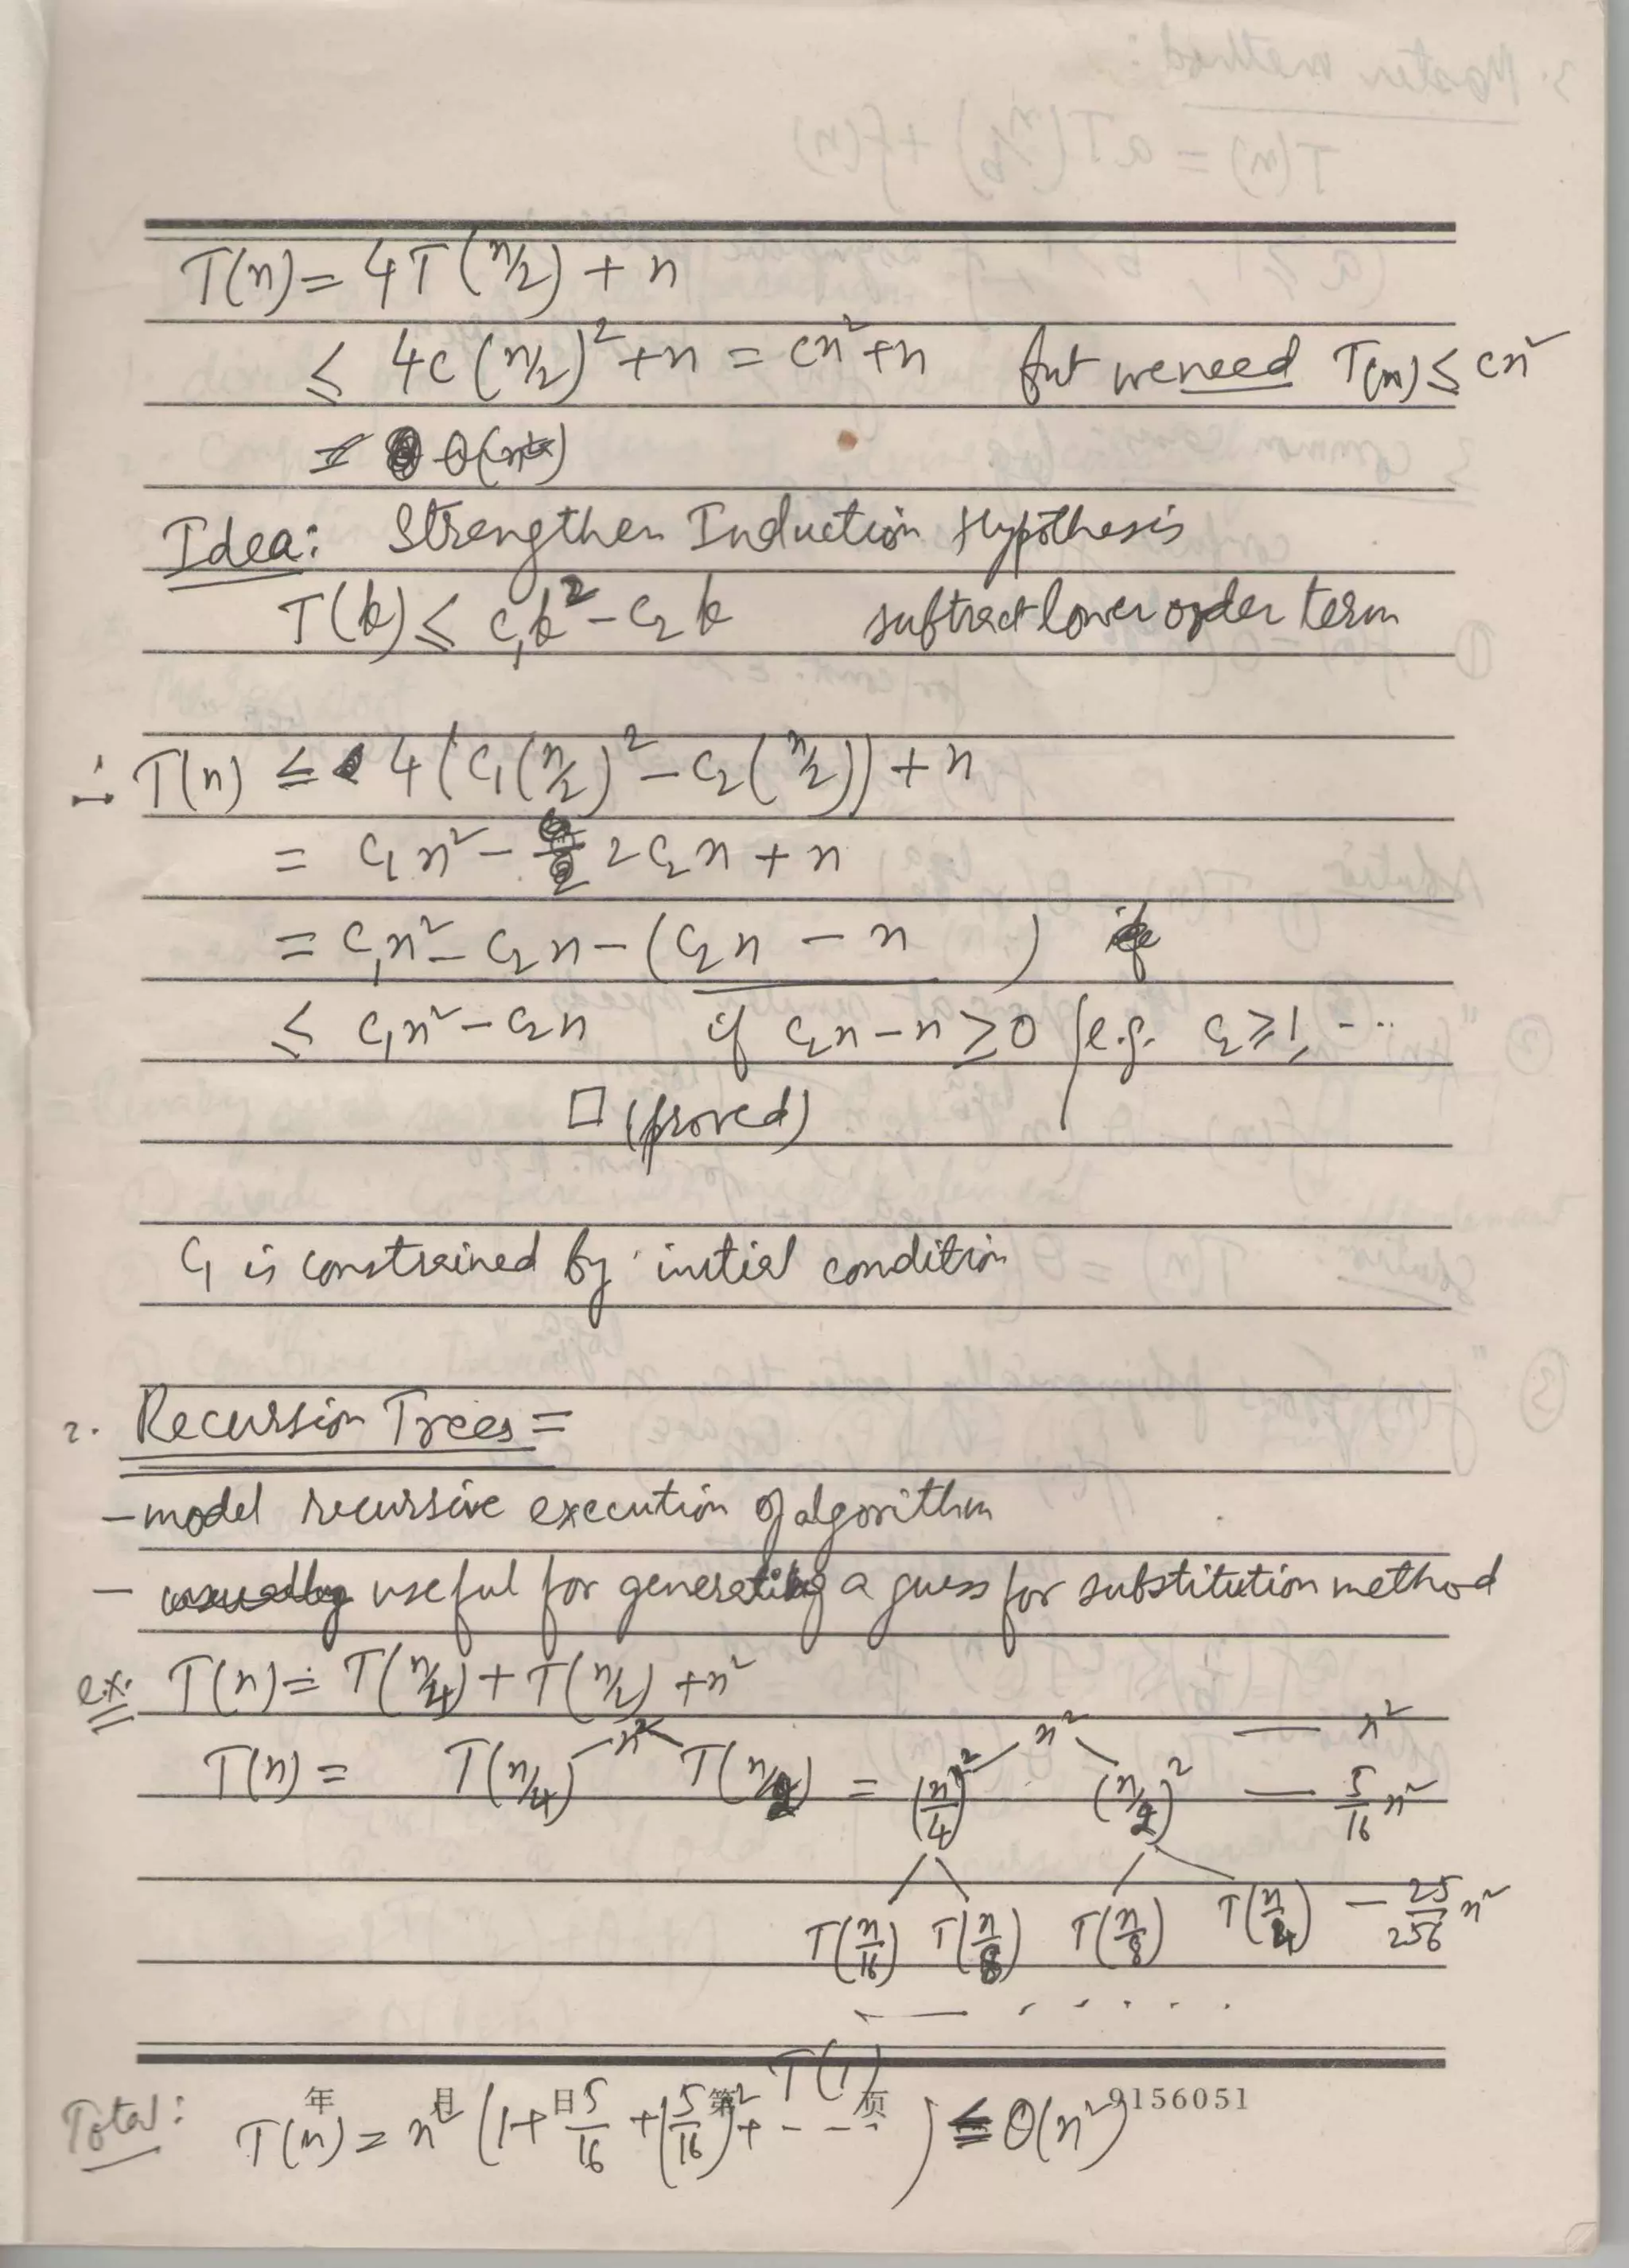 T(n) = 4T(n/2) + n
≤ 4c(n/2)² + n = cn² + n but we need T(n) ≤ cn²
Idea: Strengthen Induction Hypothesis
T(k) ≤ c₁k² - c₂k subtract lower order term
∴ T(n) ≤ 4(c₁(n/2)² - c₂(n/2)) + n
= c₁n² - 2c₂n + n
= c₁n² - c₂n - (c₂n - n)
≤ c₁n² - c₂n if c₂n - n ≥ 0 (e.g. c₂ ≥ 1, ...
□ (proved)
c₁ is constrained by initial condition
2. Recursion Trees =
- model recursive execution of algorithm
- useful for generating a guess for substitution method
ex. T(n) = T(n/4) + T(n/2) + n²
n² n² — n²
T(n) = T(n/4) T(n/2) = (n/4)² (n/2)² — 5/16 n²
T(n/16) T(n/8) T(n/8) T(n/4) - 25/256 n²
T(1)
年 月 日 第 页 9156051
Total: T(n) = n² (1 + 5/16 + (5/16)² + ---- ) ≤ Θ(n²)